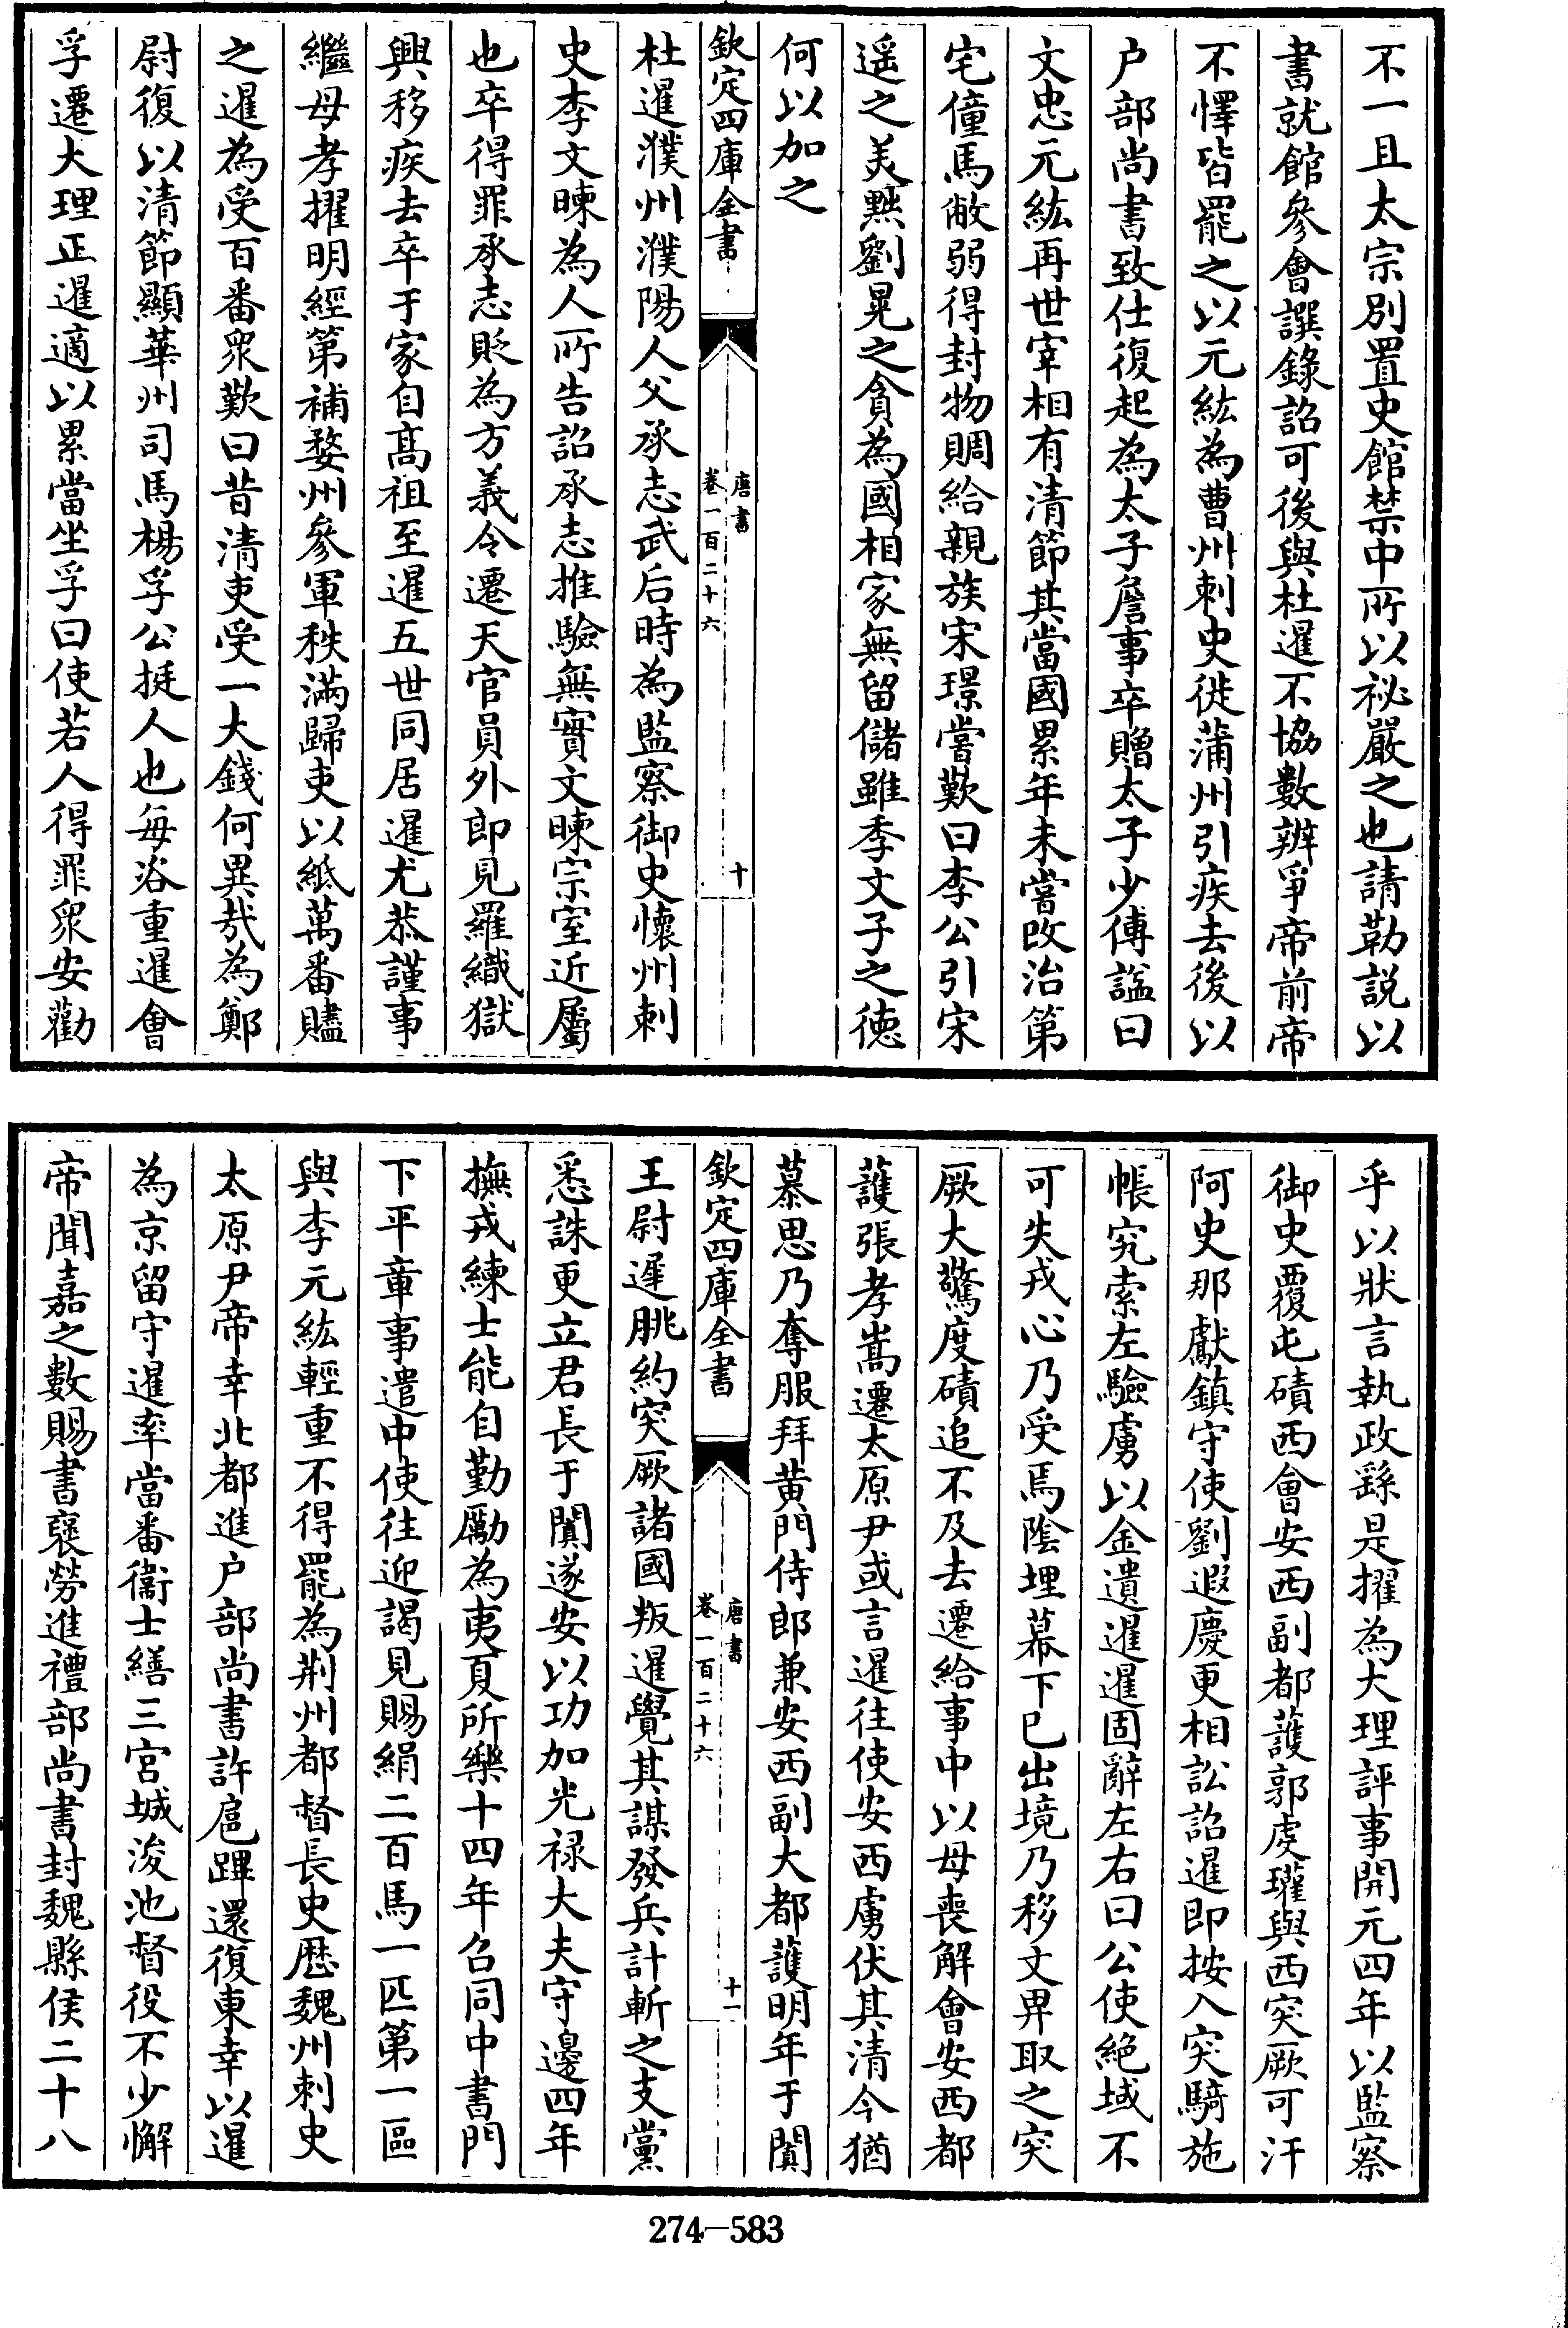 不一且太宗別置史館禁中所以祕嚴之也請勒説以
書就館參會譔錄詔可後與杜暹不協數辨爭帝前帝
不懌皆罷之以元紘為曹州刺史徙蒲州引疾去後以
户部尚書致仕復起為太子詹事卒贈太子少傅諡曰
文忠元紘再世宰相有清節其當國累年未嘗改治第
宅僮馬敝弱得封物賙給親族宋璟嘗歎曰李公引宋
遥之美黜劉晃之貪為國相家無留儲雖季文子之德
何以加之
欽定四庫全書
唐書
卷一百二十六
十
杜暹濮州濮陽人父承志武后時為監察御史懷州刺
史李文暕為人所告詔承志推驗無實文暕宗室近屬
也卒得罪承志貶為方義令遷天官員外郎見羅織獄
興移疾去卒于家自髙祖至暹五世同居暹尤恭謹事
繼母孝擢明經第補婺州參軍秩滿歸吏以紙萬番贐
之暹為受百番衆歎曰昔清吏受一大錢何異哉為鄭
尉復以清節顯華州司馬楊孚公挺人也每咨重暹會
孚遷大理正暹適以累當坐孚曰使若人得罪衆安勸
乎以狀言執政繇是擢為大理評事開元四年以監察
御史覆屯磧西會安西副都護郭虔瓘與西突厥可汗
阿史那獻鎮守使劉遐慶更相訟詔暹即按入突騎施
帳究索左驗虜以金遺暹暹固辭左右曰公使絶域不
可失戎心乃受焉陰埋幕下已出境乃移文畀取之突
厥大驚度磧追不及去遷給事中以母喪解會安西都
護張孝嵩遷太原尹或言暹往使安西虜伏其清今猶
慕思乃奪服拜黄門侍郎兼安西副大都護明年于闐
欽定四庫全書
唐書
卷一百二十六
十一
王尉遲朓約突厥諸國叛暹覺其謀發兵計斬之支黨
悉誅更立君長于闐遂安以功加光禄大夫守邊四年
撫戎練士能自勤勵為夷夏所樂十四年召同中書門
下平章事遣中使往迎謁見賜絹二百馬一匹第一區
與李元紘輕重不得罷為荆州都督長史歷魏州刺史
太原尹帝幸北都進户部尚書許扈蹕還復東幸以暹
為京留守暹率當番衞士繕三宫城浚池督役不少懈
帝聞嘉之數賜書襃勞進禮部尚書封魏縣侯二十八
274—583